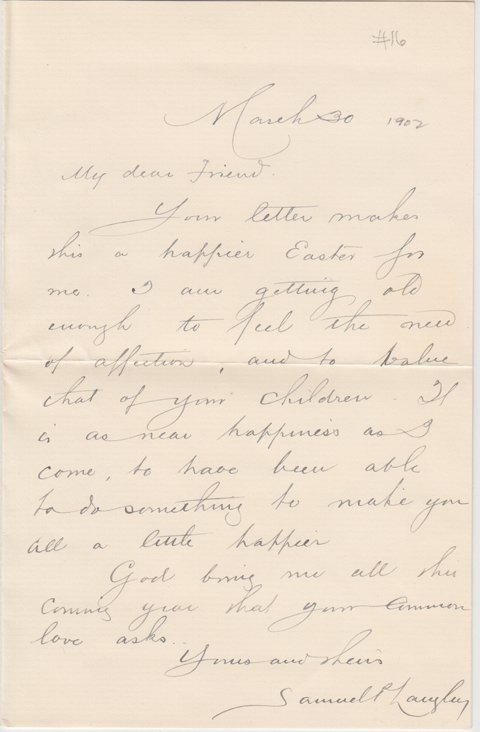 #16
March 30 1902
My dear Friend.
Your letter makes
this a happier Easter for
me. I am getting old
enough to feel the need
of affection, and to value
that of your children. It
is as near happiness as I
come, to have been able
to do something to make you
all a little happier
God bring me all this
coming year that your common
love asks..
Yours and theirs
Samuel P Langley